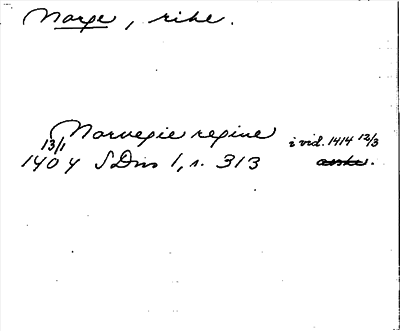 Norge, rike.
Norvegie regine i vid. 1414 12/3
13/1 1404 SDns 1, s. 313